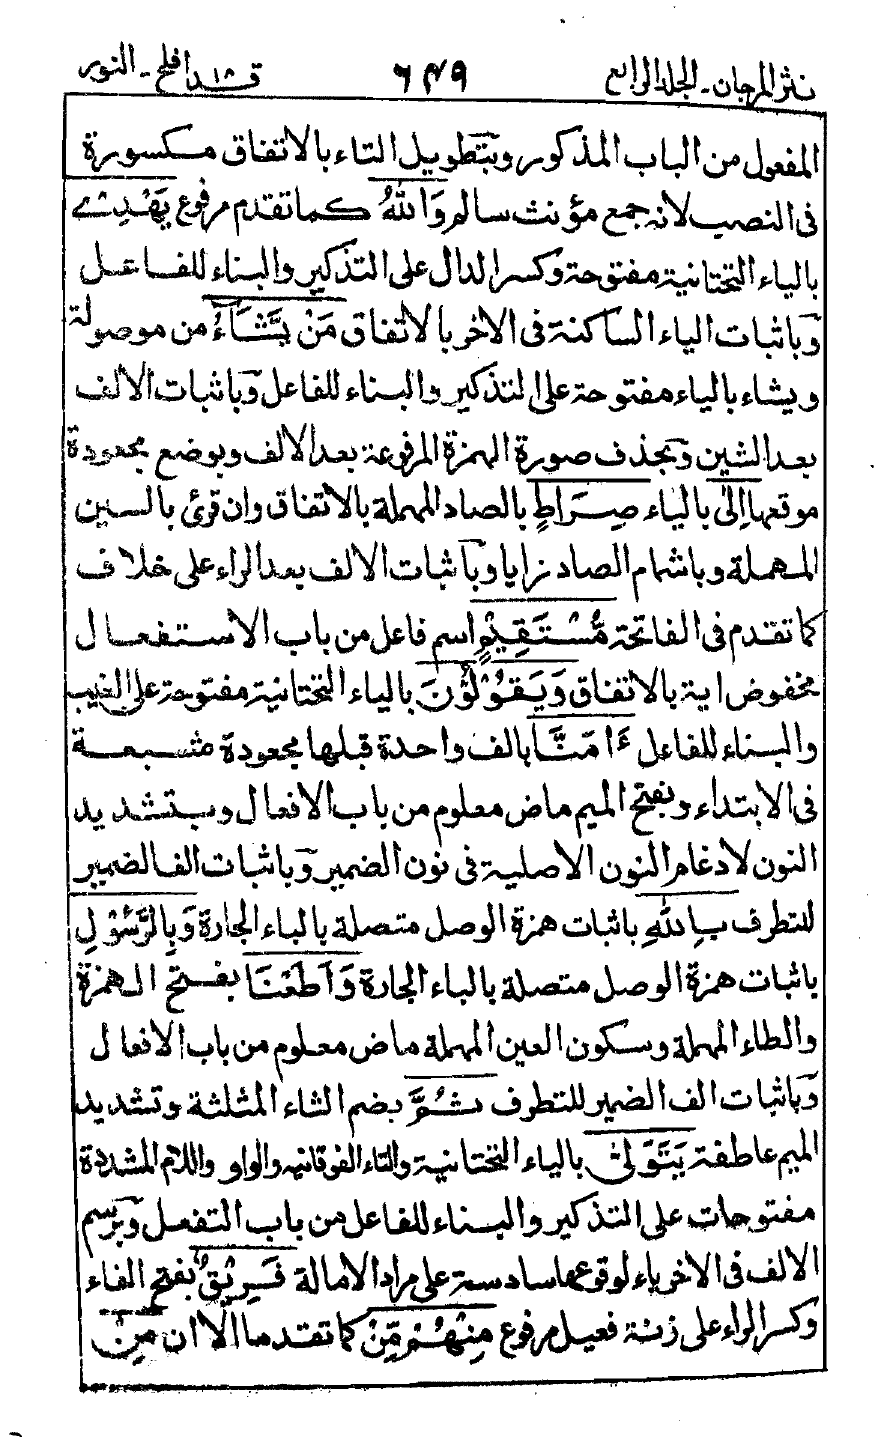 نثر المرجان۔ الجلد الرابع ٦٤٩ قد افلح ١٨۔ النور
المفعول من الباب المذكور وبتطويل التاء بالاتفاق مكسورة
فى النصب لانه جمع مؤنث سالم وَاللهُ كما تقدم مرفوع يَهْدِىْ
بالياء التحتانية مفتوحة وكسر الدال على التذكير والبناء للفاعل
وباثبات الياء الساكنة فى الاخر بالاتفاق مَنْ يَّشَآءُ من موصولة
ويشاء بالياء مفتوحة على التذكير والبناء للفاعل وباثبات الالف
بعد الشين وبحذف صورة الهمزة المرفوعة بعد الالف وبوضع مجعودة
موقعها اِلٰى بالياء صِرَاطٍ بالصاد المهملة بالاتفاق وان قرئ بالسين
المهملة وباشمام الصاد زايا وباثبات الالف بعد الراء على خلاف
كما تقدم فى الفاتحة مُّسْتَقِيْمٍ اسم فاعل من باب الاستفعال
مخفوض اية بالاتفاق وَيَقُوْلُوْنَ بالياء التحتانية مفتوحة على الغيب
والبناء للفاعل ءَامَنَّا بالف واحدة قبلها مجعودة مشبعة
فى الابتداء وبفتح الميم ماض معلوم من باب الافعال وبتشديد
النون لادغام النون الاصلية فى نون الضمير وباثبات الف الضمير
للتطرف بِاللهِ باثبات همزة الوصل متصلة بالباء الجارة وَبِالرَّسُوْلِ
باثبات همزة الوصل متصلة بالباء الجارة وَاَطَعْنَا بفتح الهمزة
والطاء المهملة وسكون العين المهملة ماض معلوم من باب الافعال
وباثبات الف الضمير للتطرف ثُمَّ بضم الثاء المثلثة وتشديد
الميم عاطفة يَتَوَلّٰى بالياء التحتانية والتاء الفوقانية والواو واللام المشددة
مفتوحات على التذكير والبناء للفاعل من باب التفعل وبرسم
الالف فى الاخر ياء لوقوعها سادسة على مراد الامالة فَرِيْقٌ بفتح الفاء
وكسر الراء على زنة فعيل مرفوع مِنْهُمْ مِّنْ كما تقدما الا ان مِنْ